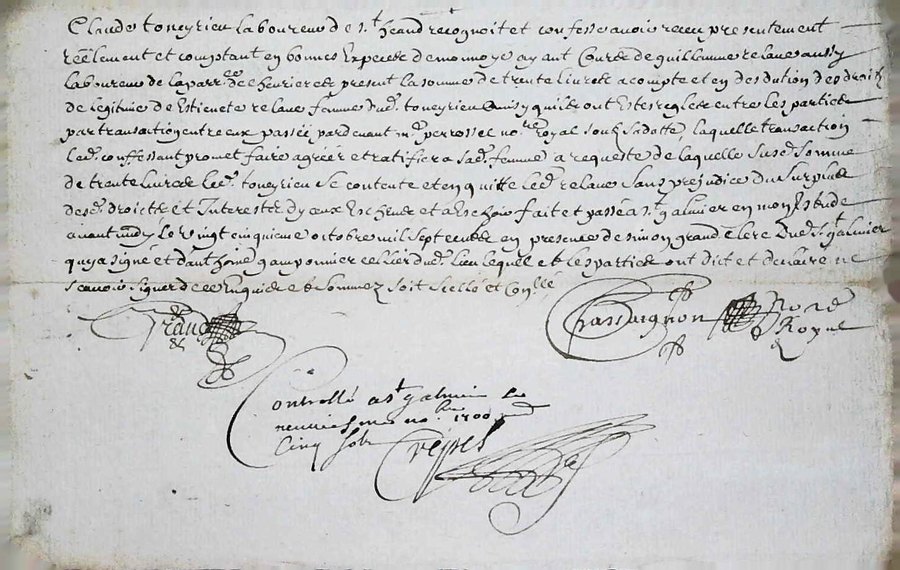 Claude toneyrieu laboureur de st heand recognoit et confesse avoir receu presentement
reelement et comptant en bonnes Especes de monnoye ayant Cours de guillaume relave aussy
laboureur de la parr.ee de present la somme de trente livres a compte et en desdution des droitz
de legitime de Estienete relave femme dud. toneyrieu Ainsy quils ont Estes regles entre les parties
par transaction entre eux passée pardevant me perrossel nore Royal soubs sa datte, laquelle transaction
led. confessant promet faire agréer et ratifier a sad. femme a requeste de laquelle susd. somme
de trente livres led. toneyrieu se contente et en quitte led. relave sans prejudice du surplus
desd. droitz et Interestz d'yceux Escheus et a Eschoir fait et passé a st galmier en mon Estude
avant midy le vingt cinquieme octobre mil sept cents en presence de simon grand clerc dud. st galmier
quy a signé et d'anthoine gamponnier cellier dud. lieu lequel et les parties ont dict et declaire ne
scavoir signer de ce enquis et sommez soit scellé et conllé
Grand
Chassaignon Nore Royal
Controllé a st galmier le
neuviesme nobre 1700
Cinq sols Crespet